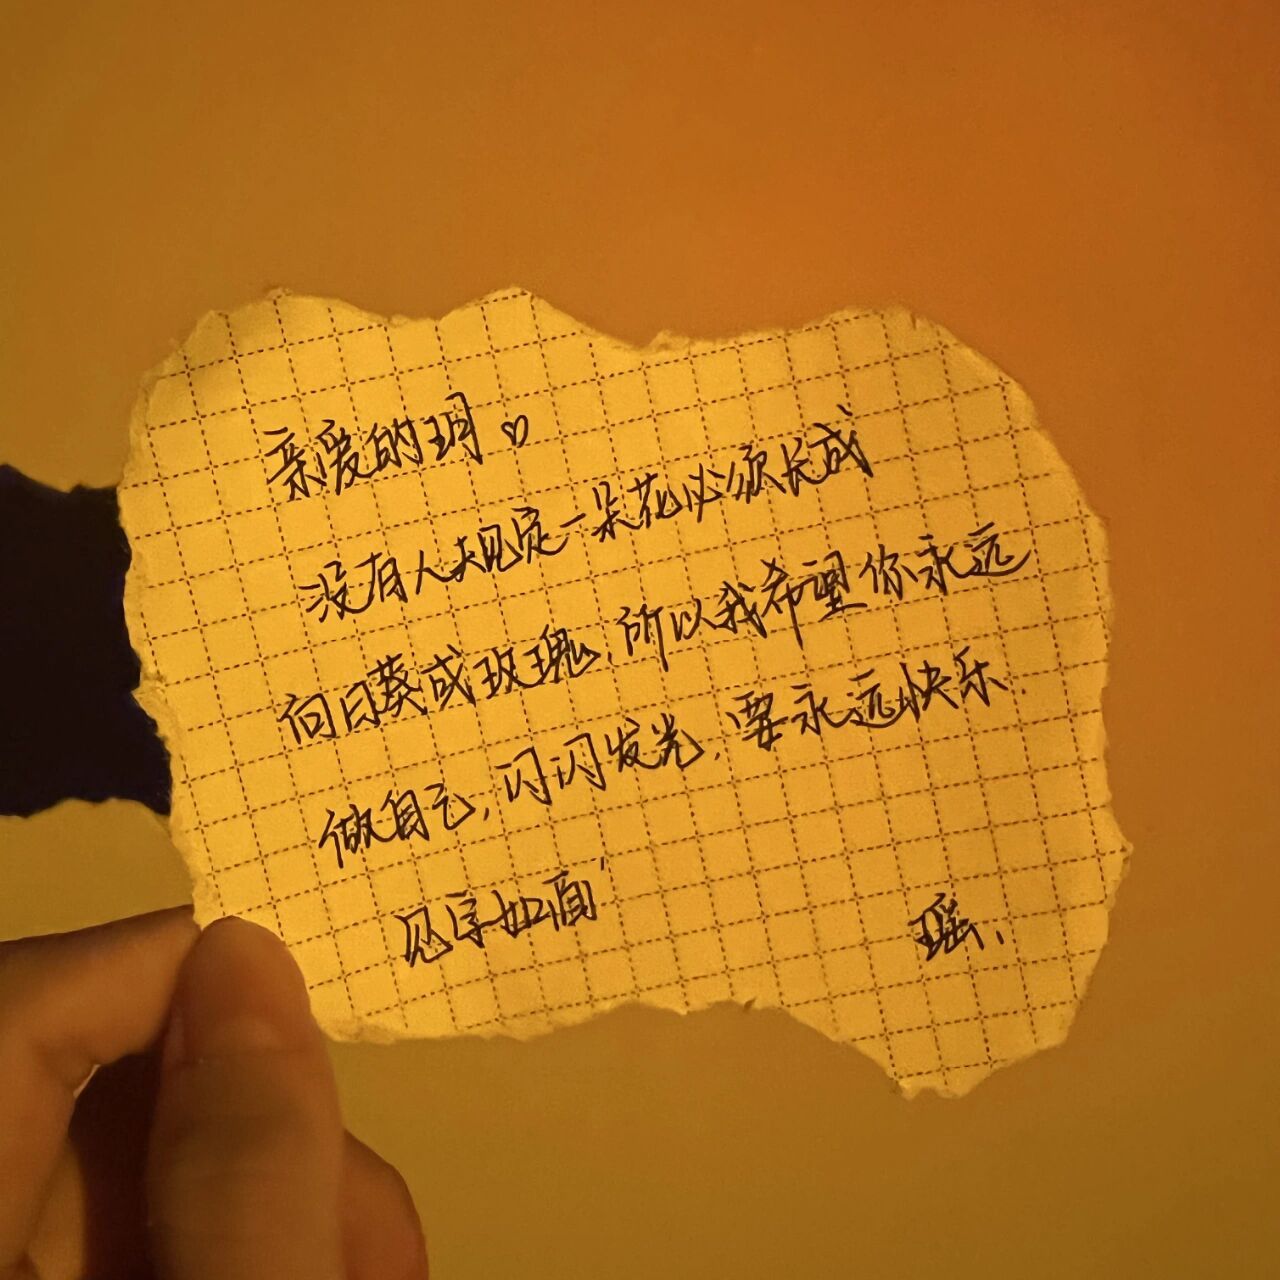 亲爱的玥。♡
没有人规定一朵花必须长成
向日葵或玫瑰,所以我希望你永远
做自己,闪闪发光,要永远快乐.
见字如面
瑶.